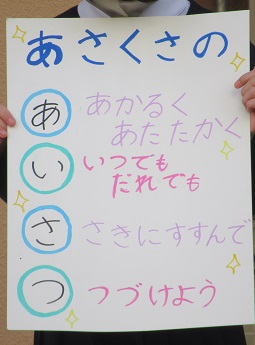 あさくさの
あ あかるく
あたたかく
い いつでも
だれでも
さ さきにすすんで
つ つづけよう